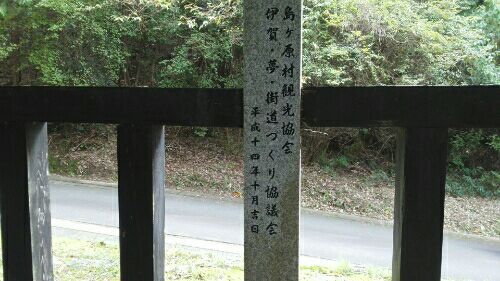 島ヶ原村観光協会
伊賀・夢・街道づくり協議会
平成十四年十月吉日